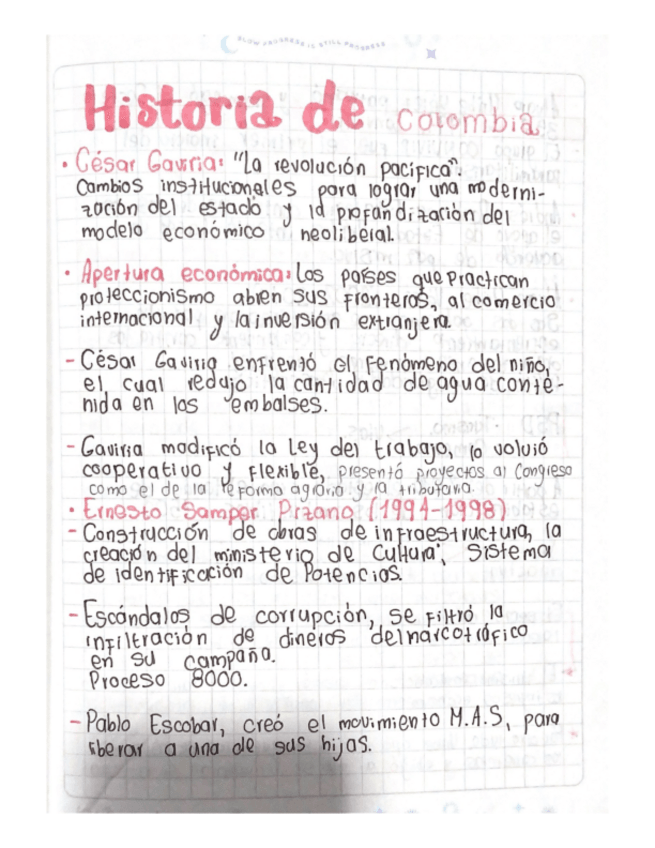 SLOW PROGRESS IS STILL PROGRESS
Historia de Colombia
• César Gaviria: "La revolución pacífica".
Cambios institucionales para lograr una moderni-
zación del estado y la profundización del
modelo económico neoliberal.
• Apertura económica: Los países que Practican
proteccionismo abren sus fronteros, al comercio
internacional y la inversión extranjera.
- César Gaviria enfrentó el Fenómeno del niño,
el cual redujo la cantidad de agua conte-
nida en los embalses.
- Gaviria modificó la Ley del trabajo, lo volvió
cooperativo y flexible, presentó proyectos al Congreso
como el de la reforma agraria y la tributaria.
• Ernesto Samper Pizano (1994-1998)
- Construcción de obras de infraestructura, la
creación del ministerio de Cultura, Sistema
de identificación de Potencias.
- Escándalos de corrupción, se Filtró la
infiltración de dineros del narcotráfico
en su campaña.
Proceso 8000.
- Pablo Escobar, creó el movimiento M.A.S, para
liberar a una de sus hijas.